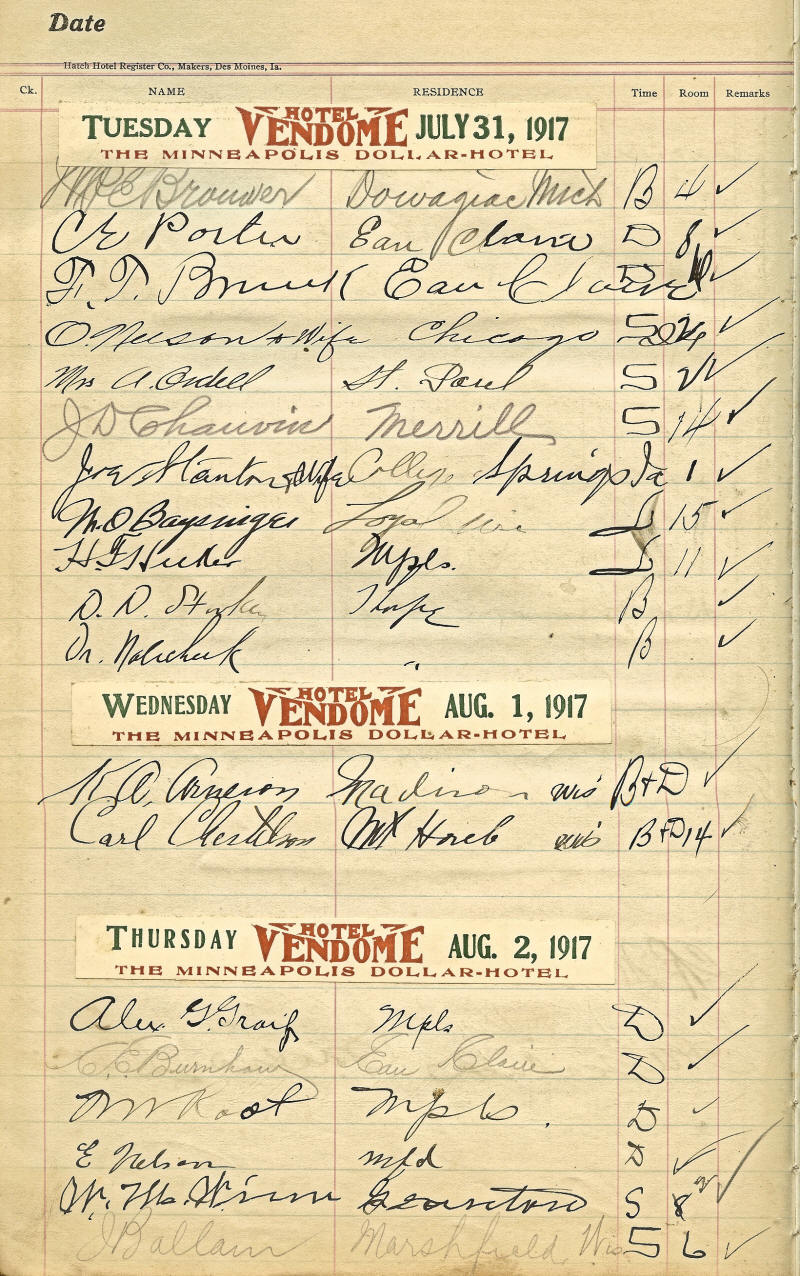 Date
Hatch Hotel Register Co., Makers, Des Moines, Ia.
Ck. NAME RESIDENCE Time Room Remarks
TUESDAY HOTEL VENDOME JULY 31, 1917
THE MINNEAPOLIS DOLLAR-HOTEL
Brouwer Dowagiac Mich B 4 ✓
C E Porter Eau Claire D 8 ✓
F. T. Eau Claire D ✓
O. Nelson & Wife Chicago S 24 ✓
Mrs A. Ordell St. Paul S ✓
J D Chauvin Merrill S 14 ✓
Joe Stanton & Wife College Springs Ia 1 ✓
M. O Baysinger Loyal Wis L 15 ✓
H. F. Mpls. L 11 ✓
D. D. Thorp B ✓
Dr. " B ✓
WEDNESDAY HOTEL VENDOME AUG. 1, 1917
THE MINNEAPOLIS DOLLAR-HOTEL
K. O. Arneson Madison Wis B+D ✓
Carl Mt Horeb Wis B+D 14 ✓
THURSDAY HOTEL VENDOME AUG. 2, 1917
THE MINNEAPOLIS DOLLAR-HOTEL
Alex. G. Mpls D ✓
C. E. Burnham Eau Claire D ✓
Mpls. D ✓
E Nelson Mfd D ✓
W. S 8 ✓
J Ballam Marshfield, Wis S 6 ✓